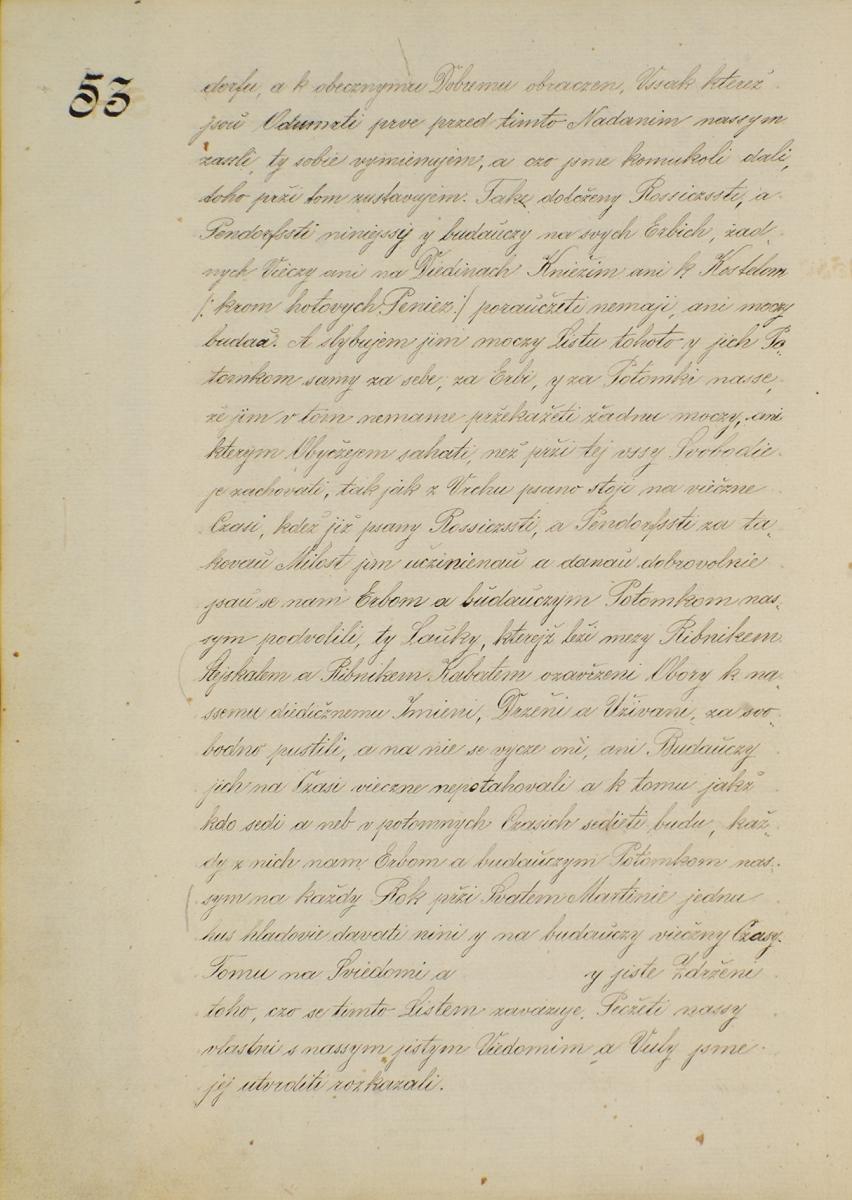 53
dorfu, a k obecznymu Dobrému obraczen, Vssak kterež
jsou Odumrti prve przed timto Nadanim nassym
zassli, ty sobie vymienujem, a czo jsme komukoli dali,
toho przi tom zustavujem. Take dotčženy Rossiczssti, a
Pendorfssti niniejssij y budauczy na svych Erbich, žad-
nych Vieczy ani na Diedinach Kniežim ani k Kostelom
/: krom hotovych Peniez :/ poraučzeti nemaji, ani moczy
budau. A slybujem jim moczy Listu tohoto y jich Po-
tomkom samy za sebe, za Erbi, y za Potomki nasse,
že jim v tom nemame przekažeti žadnu moczy, ani
kterym Obyčzejem sahati, než przi tej vssy Svobodie
je zachovati, tak jak z Vrchu psano stoji na viečzne
Czasi, kdež již psany Rossiczssti, a Pendorfssti za ta-
kovau Milost jim uczinienau a danau dobrovolnie
jsau se nam Erbom a budauczym Potomkom nas-
sym podvolili, ty Lauky, kterejž leži mezy Ribnikem
Stejskalem a Ribnikem Kabatem ozavřzeni Obory k na-
ssemu diedičznemu Imieni, Drženi a Uživani, za svo-
bodno pustili, a na nie se vycze oni, ani Budauczy
jich na Czasi vieczne nepotahovali a k tomu jakž
kdo sedi a neb v potomnych Czasich sedieti budu, kaž-
dy z nich nam Erbom a budauczym Potomkom nas-
sym na každy Rok przi Svatem Martinie jednu
hus hladovie davati nini y na budauczy viečzny Czasy.
Tomu na Sviedomi a y jiste Zdrženi
toho, czo se timto Listem zavazuje, Pečžeti nassy
vlastni s nassym jistym Viedomim a Vuly jsme
jej utvrditi rozkazali.